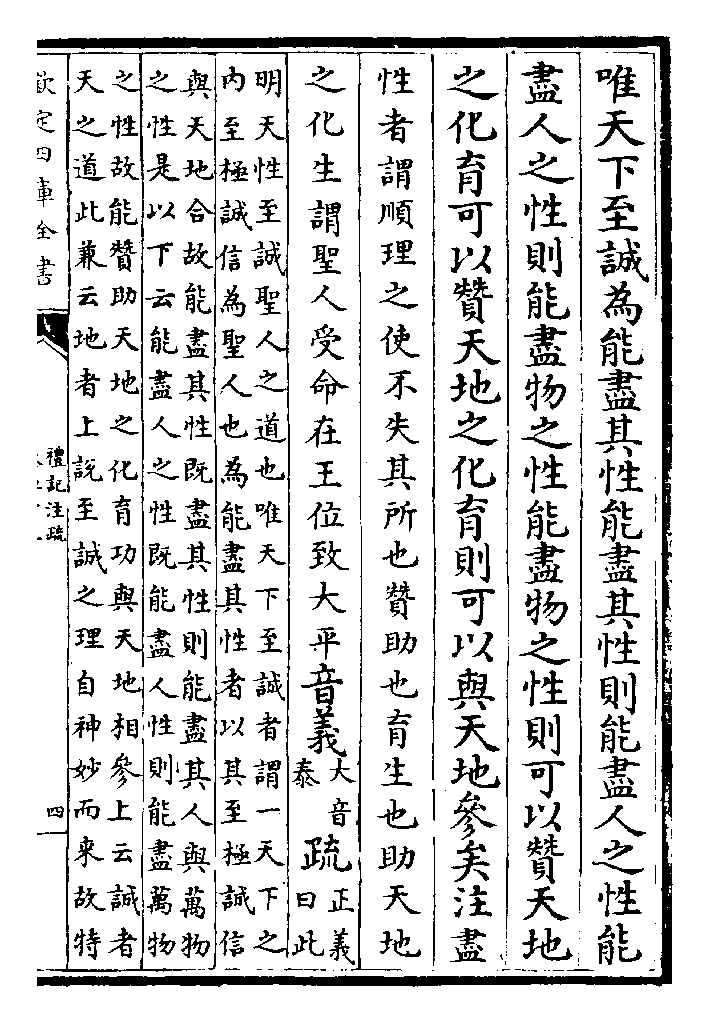 唯天下至誠為能盡其性能盡其性則能盡人之性能
盡人之性則能盡物之性能盡物之性則可以贊天地
之化育可以贊天地之化育則可以與天地參矣注盡
性者謂順理之使不失其所也贊助也育生也助天地
之化生謂聖人受命在王位致大平音義大音泰疏正義曰此
明天性至誠聖人之道也唯天下至誠者謂一天下之
內至極誠信為聖人也為能盡其性者以其至極誠信
與天地合故能盡其性既盡其性則能盡其人與萬物
之性是以下云能盡人之性既能盡人性則能盡萬物
之性故能贊助天地之化育功與天地相參上云誠者
天之道此兼云地者上說至誠之理自神妙而来故特
欽定四庫全書
禮記注疏
四